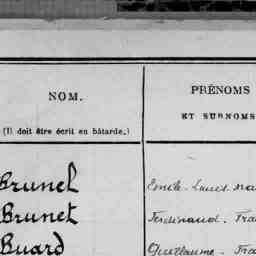 NOM.
(Il doit être écrit en bâtarde.)
PRÉNOMS
ET SURNOMS
Brunel
Emile-Louis
Brunet
Ferdinand.
Buard
Guillaume-